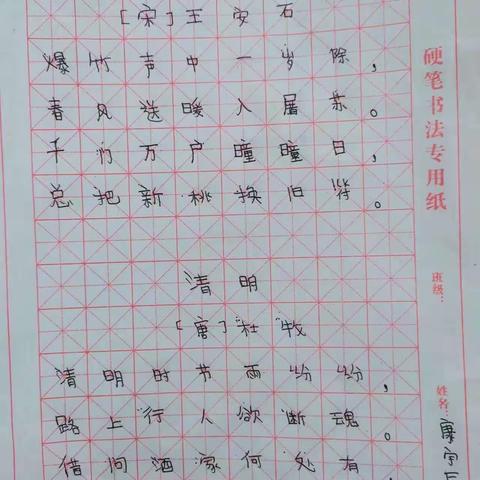 [宋]王安石
爆竹声中一岁除，
春风送暖入屠苏。
千门万户曈曈日，
总把新桃换旧符。
清明
[唐]杜牧
清明时节雨纷纷，
路上行人欲断魂。
借问酒家何处有
硬笔书法专用纸
班级：
姓名：康宇